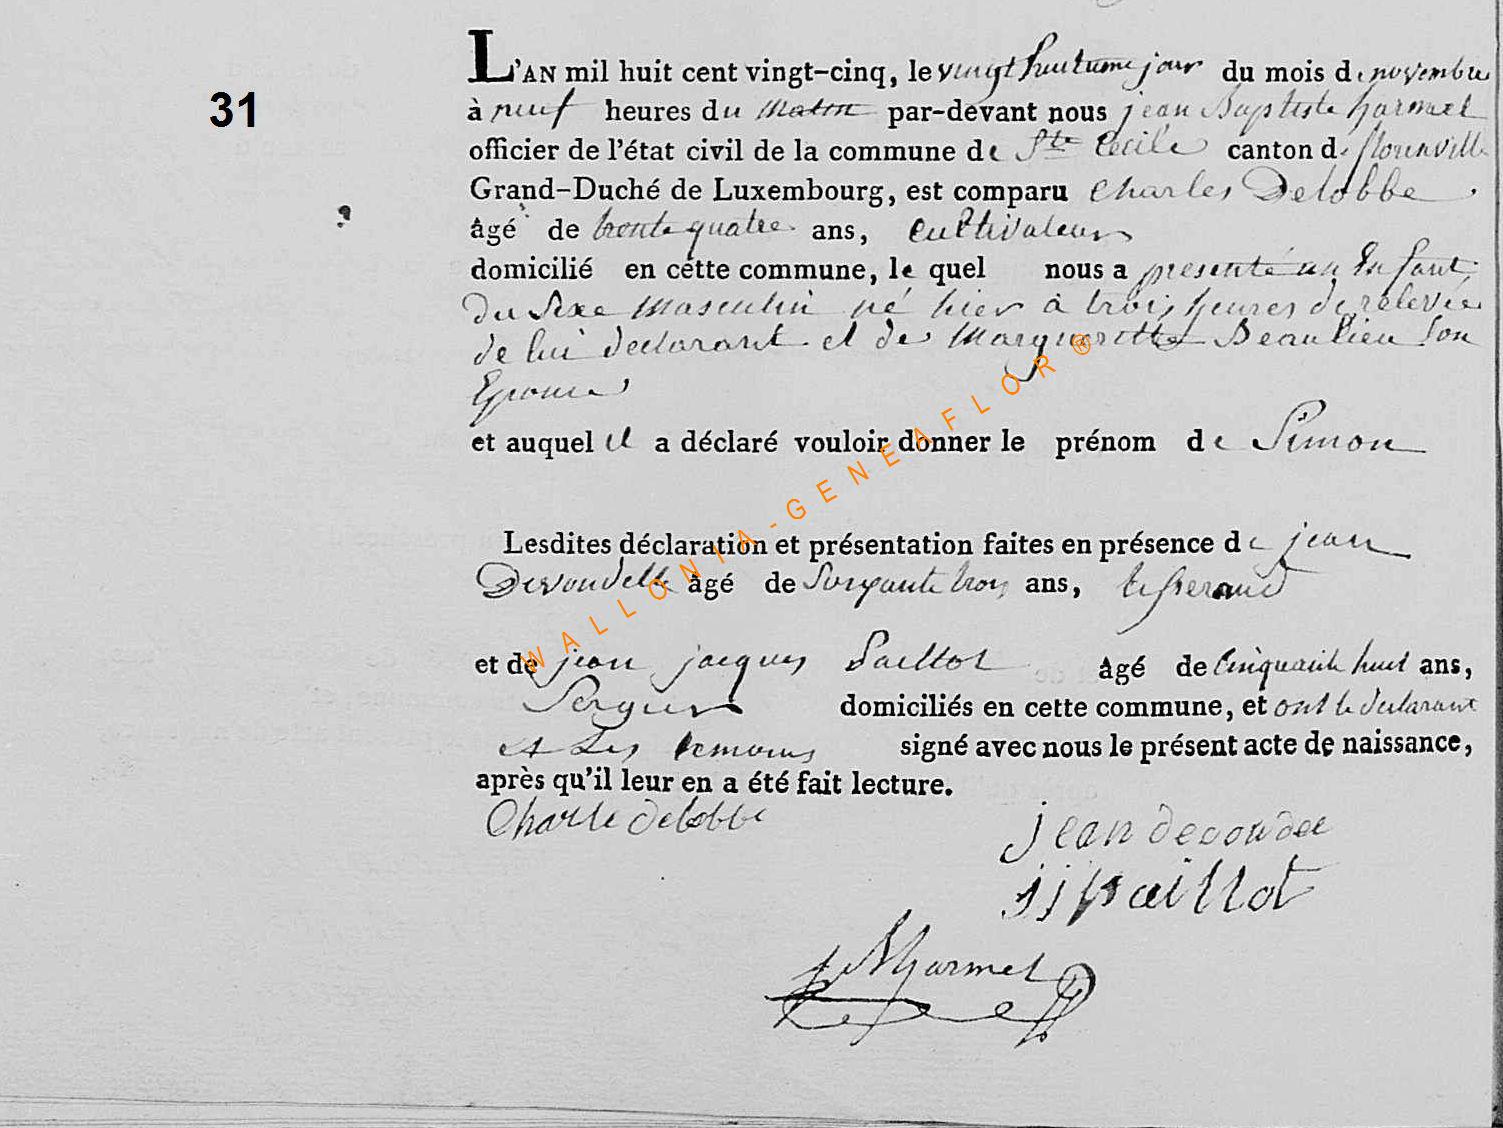 L'AN mil huit cent vingt-cinq, le vingt huitieme jour du mois de novembre
31
à neuf heures du Matin par-devant nous jean Baptiste harmel
officier de l'état civil de la commune de Ste Cécile canton de florenville
Grand-Duché de Luxembourg, est comparu Charles Delobbe
âgé de trente quatre ans, Cultivateur
domicilié en cette commune, le quel nous a presenté un Enfant
du Sexe Masculin né hier à trois heures de relevée
de lui declarant et de Margueritte Beaulieu Son
Epouse
et auquel il a déclaré vouloir donner le prénom de Simon
WALLONIA-GENEAFLOR ®
Lesdites déclaration et présentation faites en présence de jean
âgé de Soixante trois ans, tisserand
et de jean jacques Paillot âgé de Cinquante huit ans,
domiciliés en cette commune, et ont le declarant
et Les temoins signé avec nous le présent acte de naissance,
après qu'il leur en a été fait lecture.
Charle delobbe
jean
jj paillot
Harmel